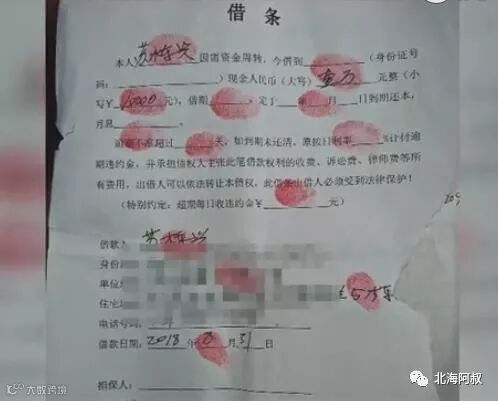 借 条
本人苏___兴因需资金周转，今借到________(身份证号
码：____________)现金人民币(大写)壹万元整(小
写¥10000元)，借期______，定于___年___月___日到期还本，
月息______。
___不准超过___天，如到期未还清，原按日利率___%计付逾
期违约金，并承担债权人主张此笔借款权利的收费、诉讼费、律师费等所
有费用，出借人可以依法转让本债权，此借条出借人必须受到法律保护！
(特别约定：超期每日收违约金¥______元)
借款
身份
单位
住宅
电话号码：
借款日期：2018年8月31日
担保人：
大数跨境
北海阿叔